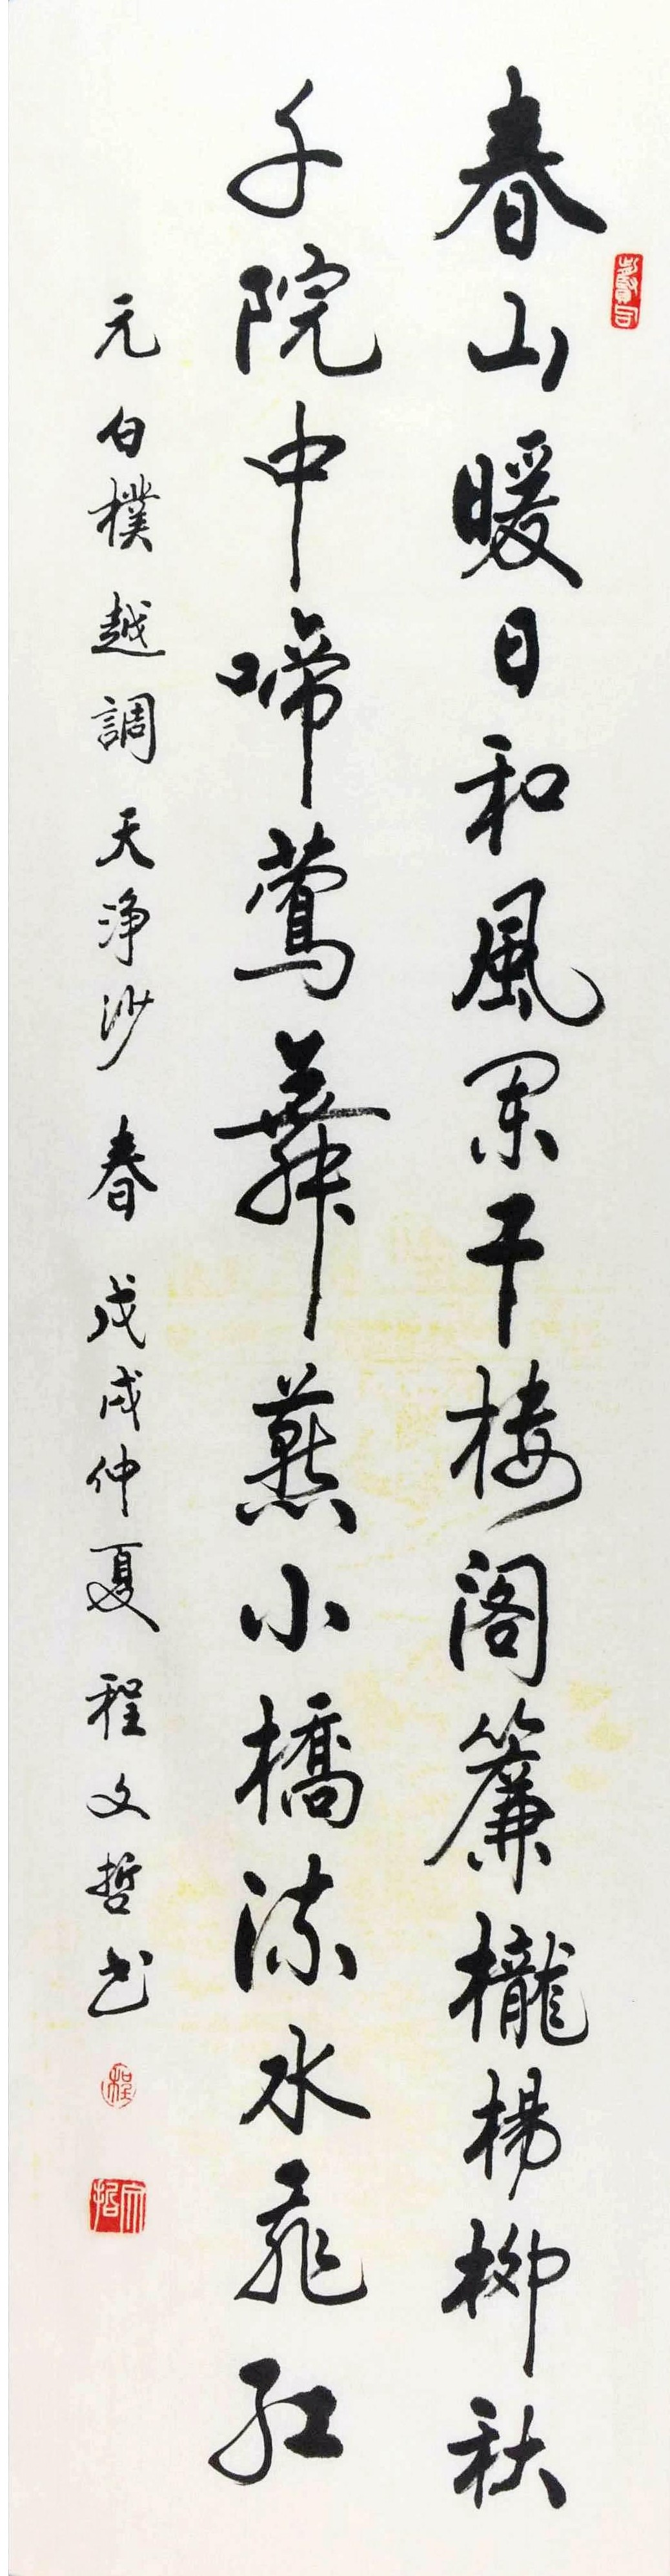 春山暖日和風闌干樓閣簾櫳楊柳秋
千院中啼鶯舞燕小橋流水飛紅
元白樸越調天淨沙春戊戌仲夏程文哲书
程
文哲